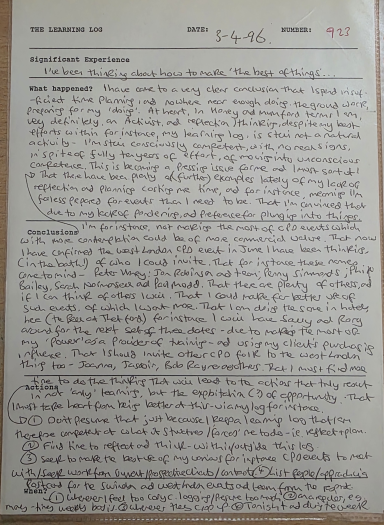 THE LEARNING LOG DATE: 3-4-96. NUMBER: 923
Significant Experience
I've been thinking about how to make 'the best of things'...
What happened? I have come to a very clear conclusion that I spend insuf-
ficient time planning and nowhere near enough doing the ground work,
preparing for my 'doing'. At heart, in Honey and mumford terms I am,
very definitely, an Activist, and reflection/thinking, despite my best
efforts within for instance, my learning log, is still not a natural
activity - I'm still consciously competent, with no real signs,
in spite of fully ten years of effort, of moving into unconscious
competence. This is becoming a pressing issue for me and I must sort it!
That there have been plenty of (further) examples lately of my lack of
reflection and planning costing me time, and for instance, meaning I'm
far less prepared for events than I need to be. That I'm convinced that
due to my lack of pondering, and preference for plunging into things
Conclusions I'm for instance, not making the most of CPD events which
with more contemplation could be of more commercial value. That now
I have confirmed the West London CPD event in June I have been thinking
(in the bath!) of who I could invite. That for instance these names
come to mind - Peter Honey; Jon Robinson and team; Penny Simmonds; Phil
Bailey, Sarah and Paul Mudd. That there are plenty of others, and
if I can think of others I will. That I could make far better use of
such events, of which I want more. That I am doing the same in hotels,
here (The Bell at Thetford) for instance I could have Sally and Rory
around for the next set of three dates - due to make the most of
my 'power' as a provider of training - and using my client's purchasing
influence. That I should invite other CPD folk to the West London
thing too - Joanna, others. That I must find more
time to do the thinking that will lead to the actions that truly result
Actions in not 'only' learning, but the exploitation (?) of opportunity. That
I must take heart from being better at this - via my log for instance.
① Don't presume that just because I keep a learning log that I am
therefore competent at what its structure/forces me to do - ie. reflect + plan.
② Find time to reflect and think - within/outside this log
③ Seek to make the best use of my various for instance CPD events to meet
with/seek work from current/prospective clients/contacts ④ List people/approach
postcard for the Swindon and West London events and learn from the
When? ① whenever I feel too cosy c. logging/perhaps too much
②